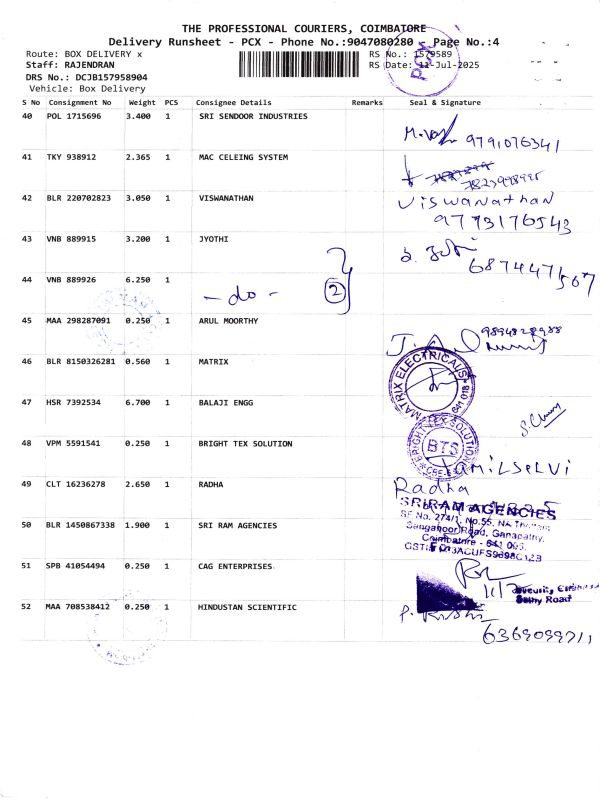 THE PROFESSIONAL COURIERS, COIMBATORE
Delivery Runsheet - PCX - Phone No.:9047080280 - Page No.:4
Route: BOX DELIVERY x RS No.: 1579589
Staff: RAJENDRAN RS Date: 11-Jul-2025
DRS No.: DCJB157958904
Vehicle: Box Delivery
PCX
S No Consignment No Weight PCS Consignee Details Remarks Seal & Signature
40 POL 1715696 3.400 1 SRI SENDOOR INDUSTRIES
9791076341
41 TKY 938912 2.365 1 MAC CELEING SYSTEM
42 BLR 220702823 3.050 1 VISWANATHAN Viswanathan
9773176543
43 VNB 889915 3.200 1 JYOTHI
6874471507
44 VNB 889926 6.250 1 - do - 2
45 MAA 298287091 0.250 1 ARUL MOORTHY
9894828988
46 BLR 8150326281 0.560 1 MATRIX
MATRIX ELECTRICALS
47 HSR 7392534 6.700 1 BALAJI ENGG
48 VPM 5591541 0.250 1 BRIGHT TEX SOLUTION
BRIGHT TEX SOLUTION
BTS
TAMILSELVI
49 CLT 16236278 2.650 1 RADHA Radha
50 BLR 1450867338 1.900 1 SRI RAM AGENCIES
SRIRAM AGENCIES
SF No. 274/1, No.55, NA
Sanganoor Road, Ganapathy,
Coimbatore - 641 006.
51 SPB 41054494 0.250 1 CAG ENTERPRISES
Sathy Road
52 MAA 708538412 0.250 1 HINDUSTAN SCIENTIFIC
6369099711